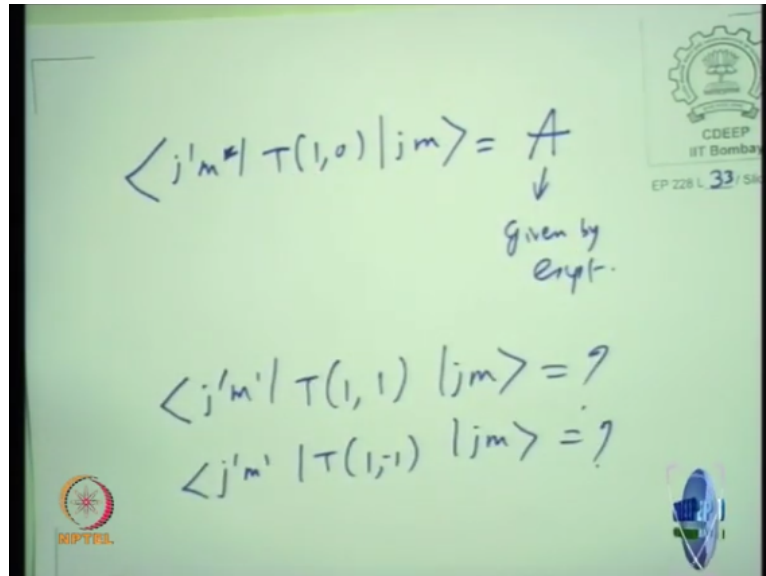 CDEEP
IIT Bombay
EP 228 L 33 / Slid
<j'm'| T(1,0) |jm> = A
↓
Given by
Expt.
<j'm'| T(1,1) |jm> = ?
<j'm' | T(1,-1) |jm> = ?
NPTEL